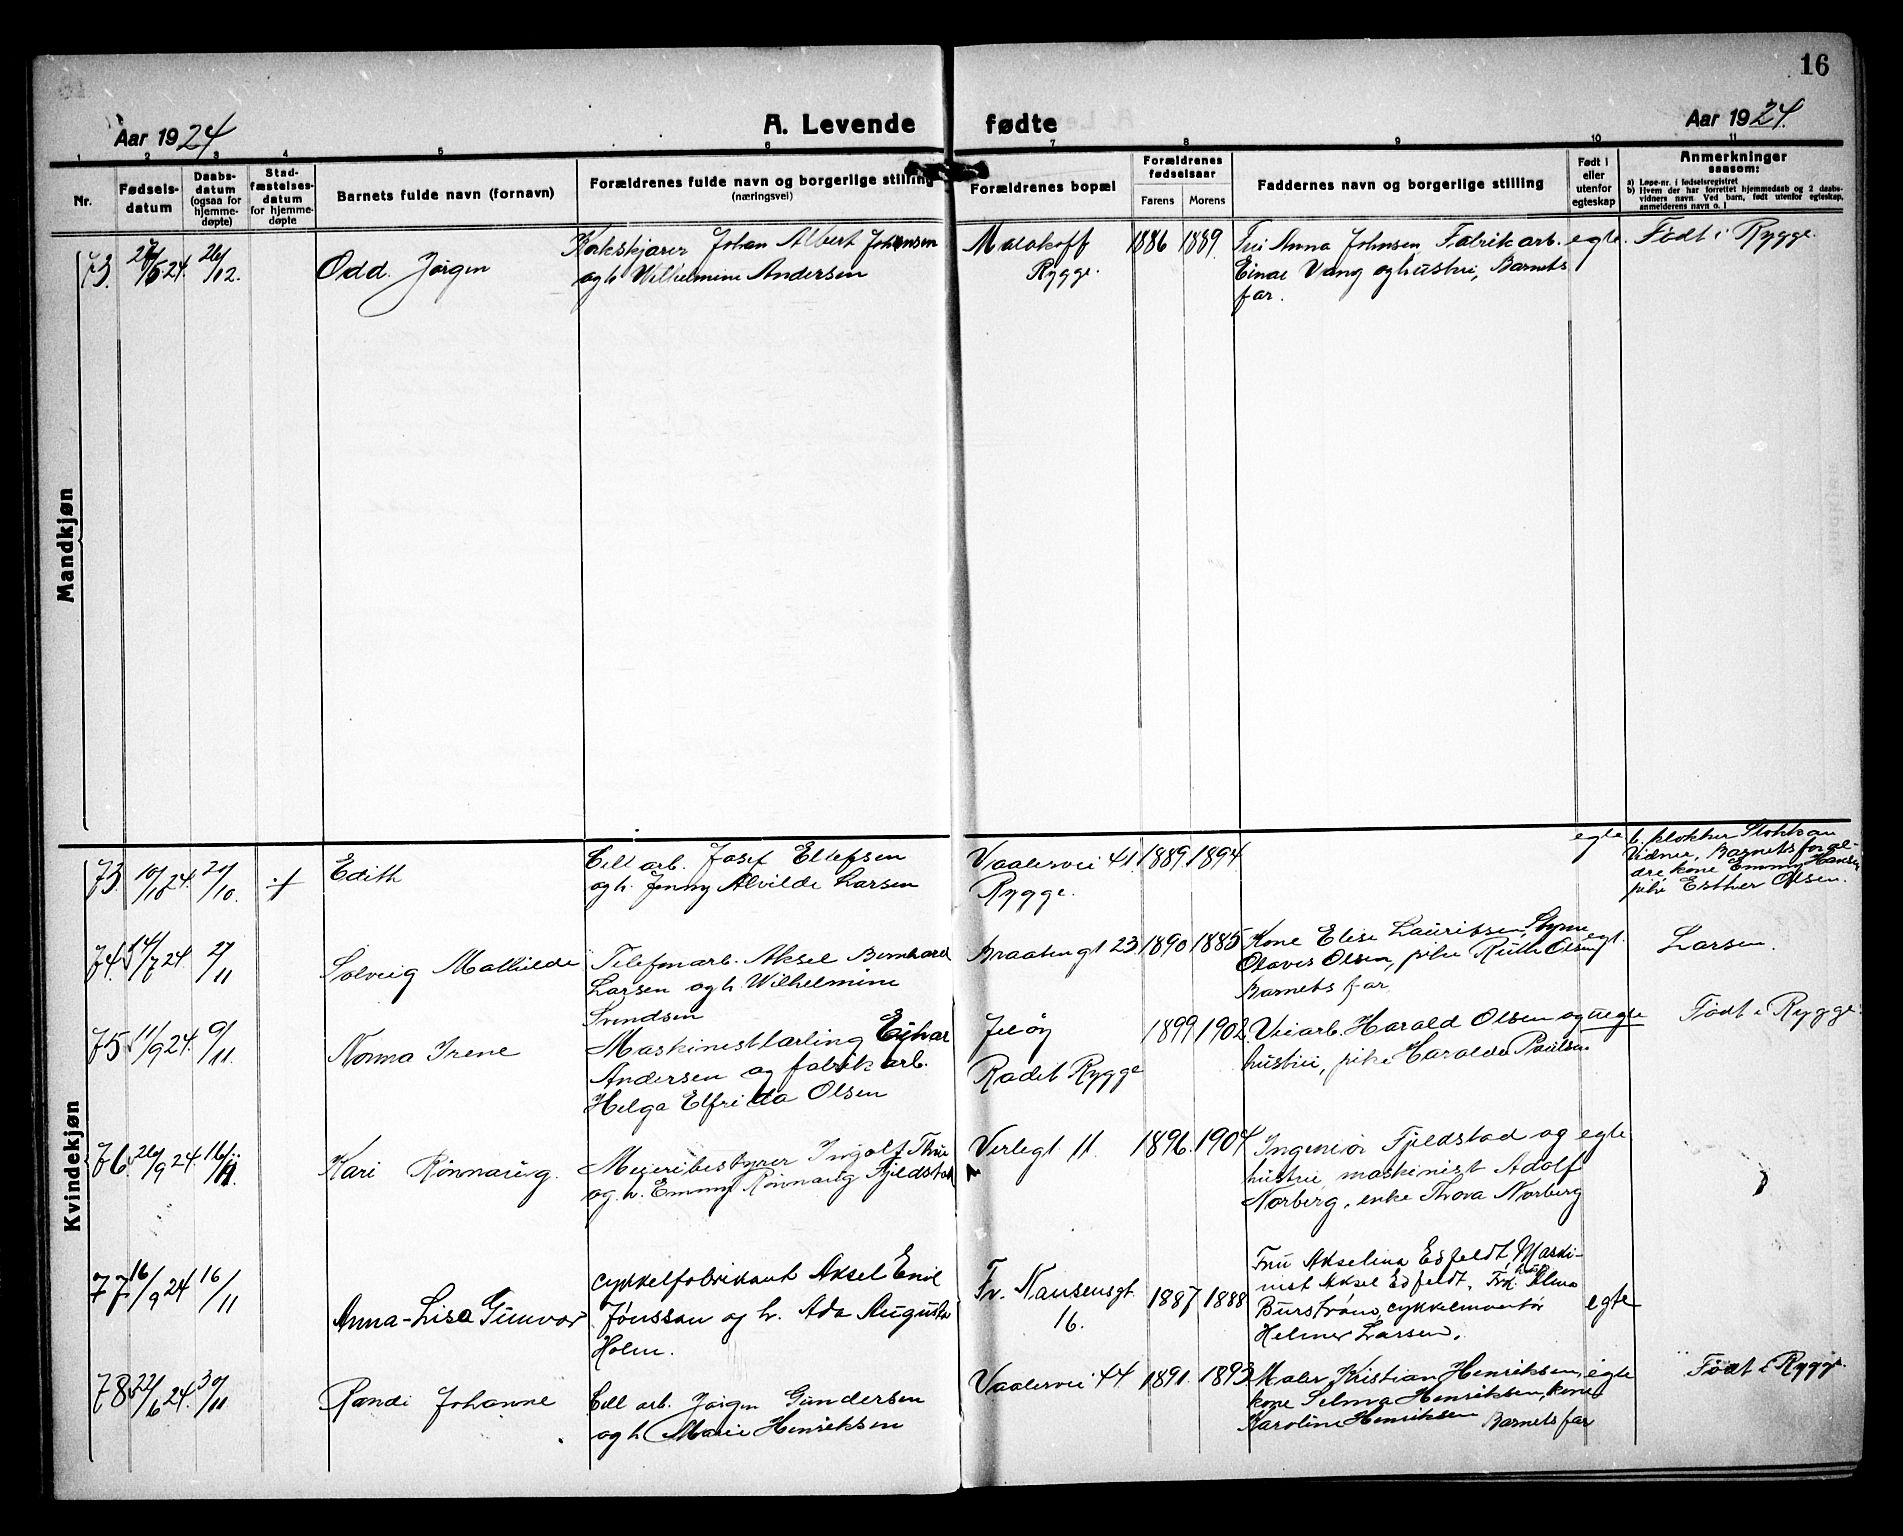 16
Aar 1924
A. Levende fødte
Aar 1924.
1 2 3 4 5 6 7 8 9 10 11
Nr.
Fødsels-
datum
Daabs-
datum
(ogsaa for
hjemme-
døpte)
Stad-
fæstelses-
datum
for hjemme-
døpte
Barnets fulde navn (fornavn)
Forældrenes fulde navn og borgerlige stilling
(næringsvei)
Forældrenes bopæl
Forældrenes
fødselsaar
Farens Morens
Faddernes navn og borgerlige stilling
Født i
eller
utenfor
egteskap
Anmerkninger
saasom:
a) Løpe-nr. i fødselsregistret
b) Hvem der har forrettet hjemmedaab og 2 daabs-
vidners navn. Ved barn, født utenfor egteskap,
anmelderens navn o. l
Mandkjøn
73. 24. 26/12.
Odd Jørgen
Johan Albert Johansen
og h. Wilhelmine Andersen
Malakoff
Rygge.
1886 1889.
Fru Anna Johnsen Fabrikarb.
Einar Vang og hustru, Barnets
far.
egte.
Født i Rygge.
Kvindekjøn
73. 10/10 24. /10.
Edith
Cell arb. Josef Ellefsen
og h. Jenny Alvilde Larsen
Vaalervei 41.
Rygge.
1889. 1894.
egte
b. klokker Stokkan
Vidner, Barnets foræl-
dre kone Emmy Hansen
pike Esther Olsen.
74. 14/7 24. 2/11
Solveig Mathilde
Telefonarb. Aksel Bernhard
Larsen og h. Wilhelmine
Svendsen
Braatengt 23
1890 1885
Kone Elise Lauritsen,
Olaves Olsen, pike Ruth Olsen
Barnets far
egt.
Larsen.
75. 11/9 24. 9/11.
Norma Irene
Maskinistlærling Eijvar
Andersen og fabrikarb.
Helga Elfrida Olsen
Jeløy
Radet Rygge
1899 1902.
Veiarb. Harald Olsen og
hustru, pike Haralda Paulsen
uegte
Født i Rygge.
76. 26/9 24. 16/11.
Kari Rønnaug.
Meieribestyrer Ingolf
og h. Emmy Rønnaug Fjeldstad
Verlegt 11.
1896. 1904
Ingeniør Fjeldstad og
hustru, maskinist Adolf
Norberg, enke Thora Norberg
egte
77. 16/9 24 16/11
Anna-Lisa Gunvor
Cykkelfabrikant Aksel Emil
Jönsson og h. Ada Augusta
Holm.
Fr. Nansensgt.
16.
1887 1888
Fru Akselina Edfeldt, Maski-
nist Aksel Edfeldt, Frk. Elma
Burström, cykkelmontør
Helmer Larsen.
egte
78. 22/6 24. 30/11
Randi Johanne
Cell arb. Jørgen Gundersen
og h. Marie Henriksen
Vaalervei 44
1891. 1893
Maler Kristian Henriksen,
kone Selma Henriksen, kone
Karoline Henriksen Barnets far
egte
Født i Rygge.